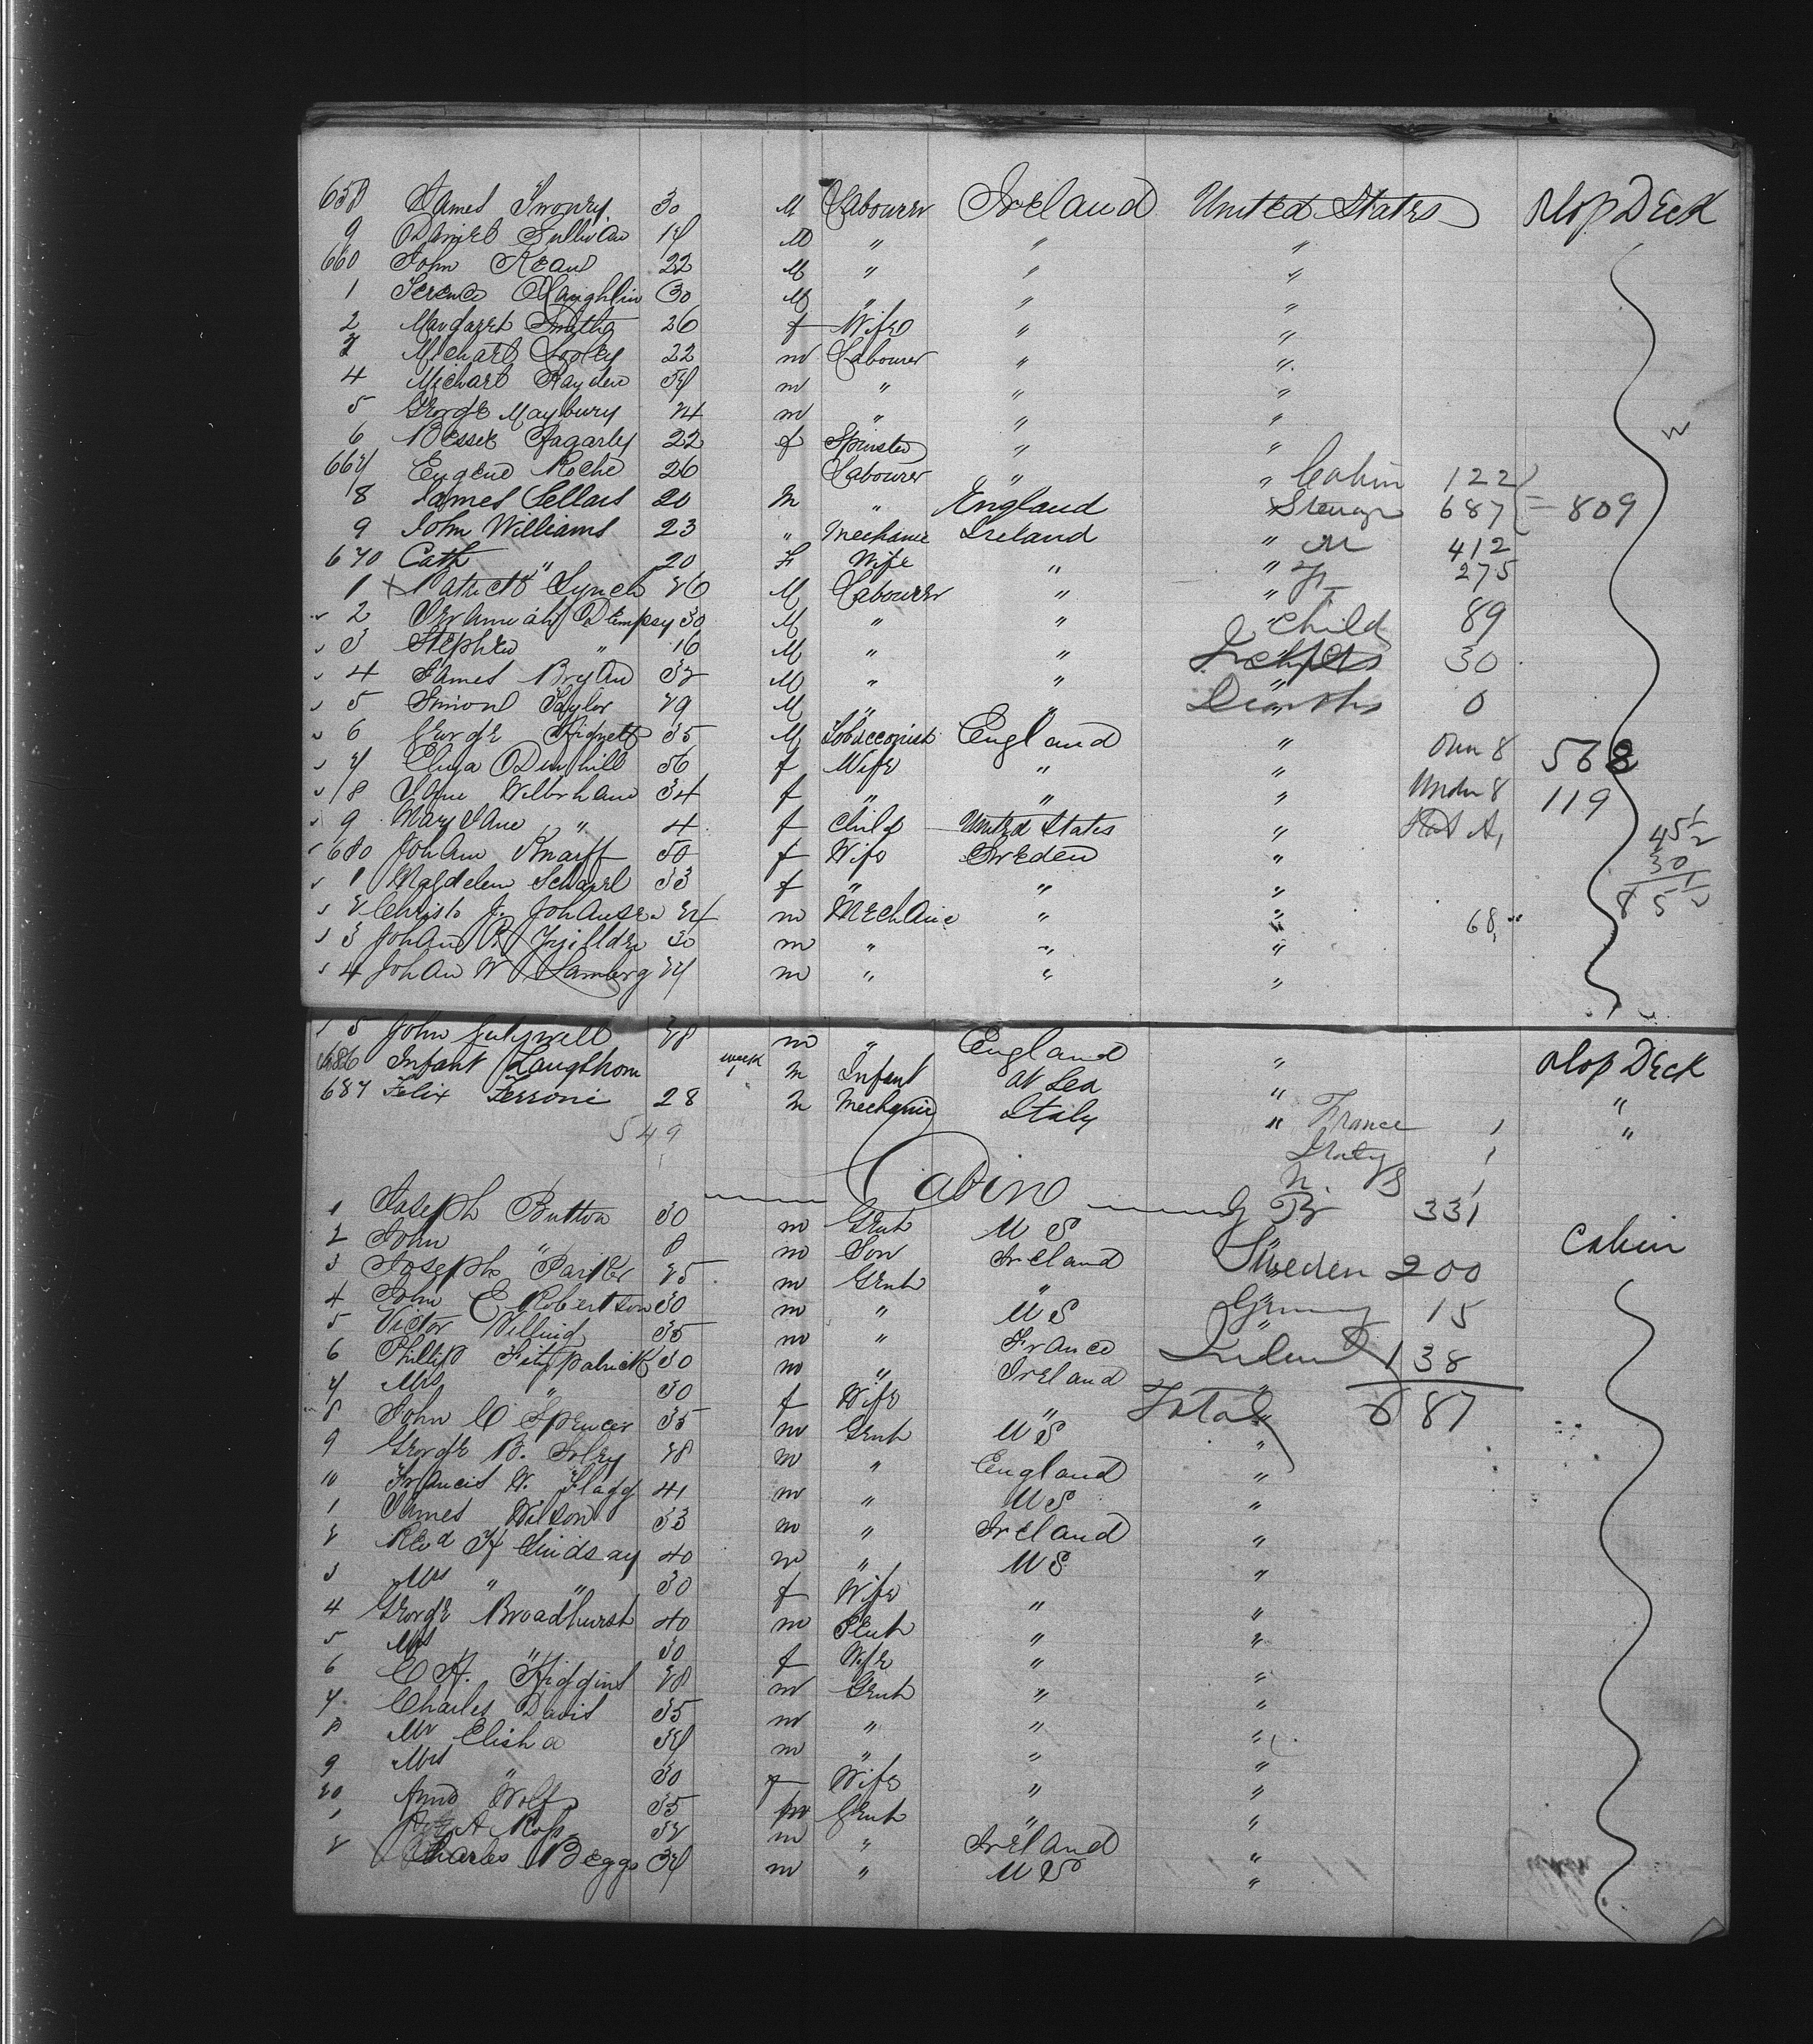 658 James 30 M Labourer Ireland United States Slop Deck
9 Daniel Sullivan 17 M " " "
660 John Kean 22 M " " "
1 Terence OLaughlin 30 M " " "
2 Margaret Smith 26 f Wife " "
3 Michael Looley 22 m Labourer " "
4 Michael Hayden 37 m " " "
5 George Maybury 24 m " " "
6 Bessie Fagarty 22 f Spinster " "
667 Eugene Roche 26 Labourer " " Cabin 122
8 James Sellars 20 M " England " Steerage 687 = 809
9 John Williams 23 " Mechanic Ireland " M 412
670 Cath " 20 F Wife " " F 275
1 x Patrick Lynch 26 M Labourer " "
2 Jeramiah Dempsy 30 M " " " Child 89
3 Stephen " 16 M " " Infants 30
4 James Bryan 32 M " " "
5 Simond Taylor 29 M " " Deaths 0
6 George Hignett 35 M Tobacconist England "
7 Eliza 56 f Wife " " Over 8 568
8 Jane Wilbrham 34 f " " " Under 8 119
9 Mary Jane " 4 f Child United States "
45 1/2
680 Johann 50 f Wife Sweden " 30
1 Magdelen 33 f " " " 85 1/2
2 Christo J. Johansen 24 m Mechanic " " 68
3 Johan R 30 m " " "
4 Johan W Lamberg 27 m " " "
5 John 28 m " England " Slop Deck
686 Infant Langthorn week 1 M Infant at Sea " "
687 Felix Ferroni 28 M Mechanic Italy " France 1 "
549 Italy 1
Cabin N. S 1
1 Joseph Button 30 m Gent U S G Br 331
2 John " 8 m Son Ireland Cabin
3 Joseph Parker 25 m Gent " Sweden 200
4 John C Robertson 30 m " U S Germany 15
5 Victor 35 m " France "
6 Phillip Fitzpatrick 30 m " Ireland Ireland 138
7 Mrs " 30 f Wife " " Total 687
8 John C Spencer 35 m Gent U S "
9 George B. 28 m " England "
10 Francis W. Flagg 41 m " U S "
1 James Wilson 33 m " Ireland "
2 Revd H Lindsay 40 m " U S "
3 Mrs " " 30 f Wife " "
4 George Broadhurst 40 m Gent " "
5 Mrs " 30 f Wife " "
6 C H. Higgins 28 m Gent " "
7 Charles Davis 35 m " " "
8 Mr Elisha 37 m " " "
9 Mrs " 30 f Wife " "
20 Wolf 35 m Gent " "
1 A Ross 32 m " Ireland "
2 Charles Beggs 37 m " U S "